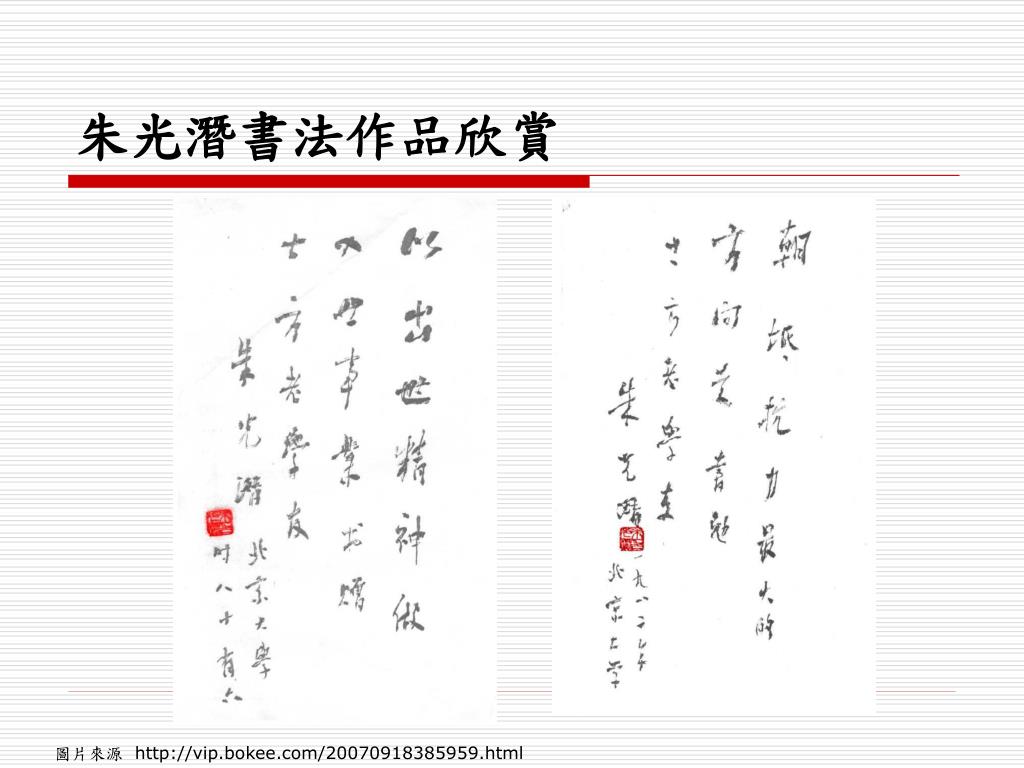 朱光潛書法作品欣賞
以出世精神做
入世事業书赠
士方老學友
朱光潛
北京大學
時八十有六
朝抵抗力最大的
方向走書勉
士方老學友
朱光潛
一九八二年
北京大学
圖片來源 http://vip.bokee.com/20070918385959.html